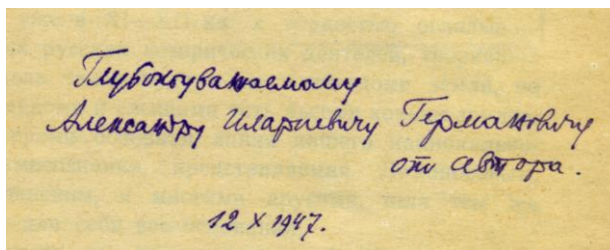 Глубокоуважаемому
Александру Илариевичу Германовичу
от автора.
12 X 1947.